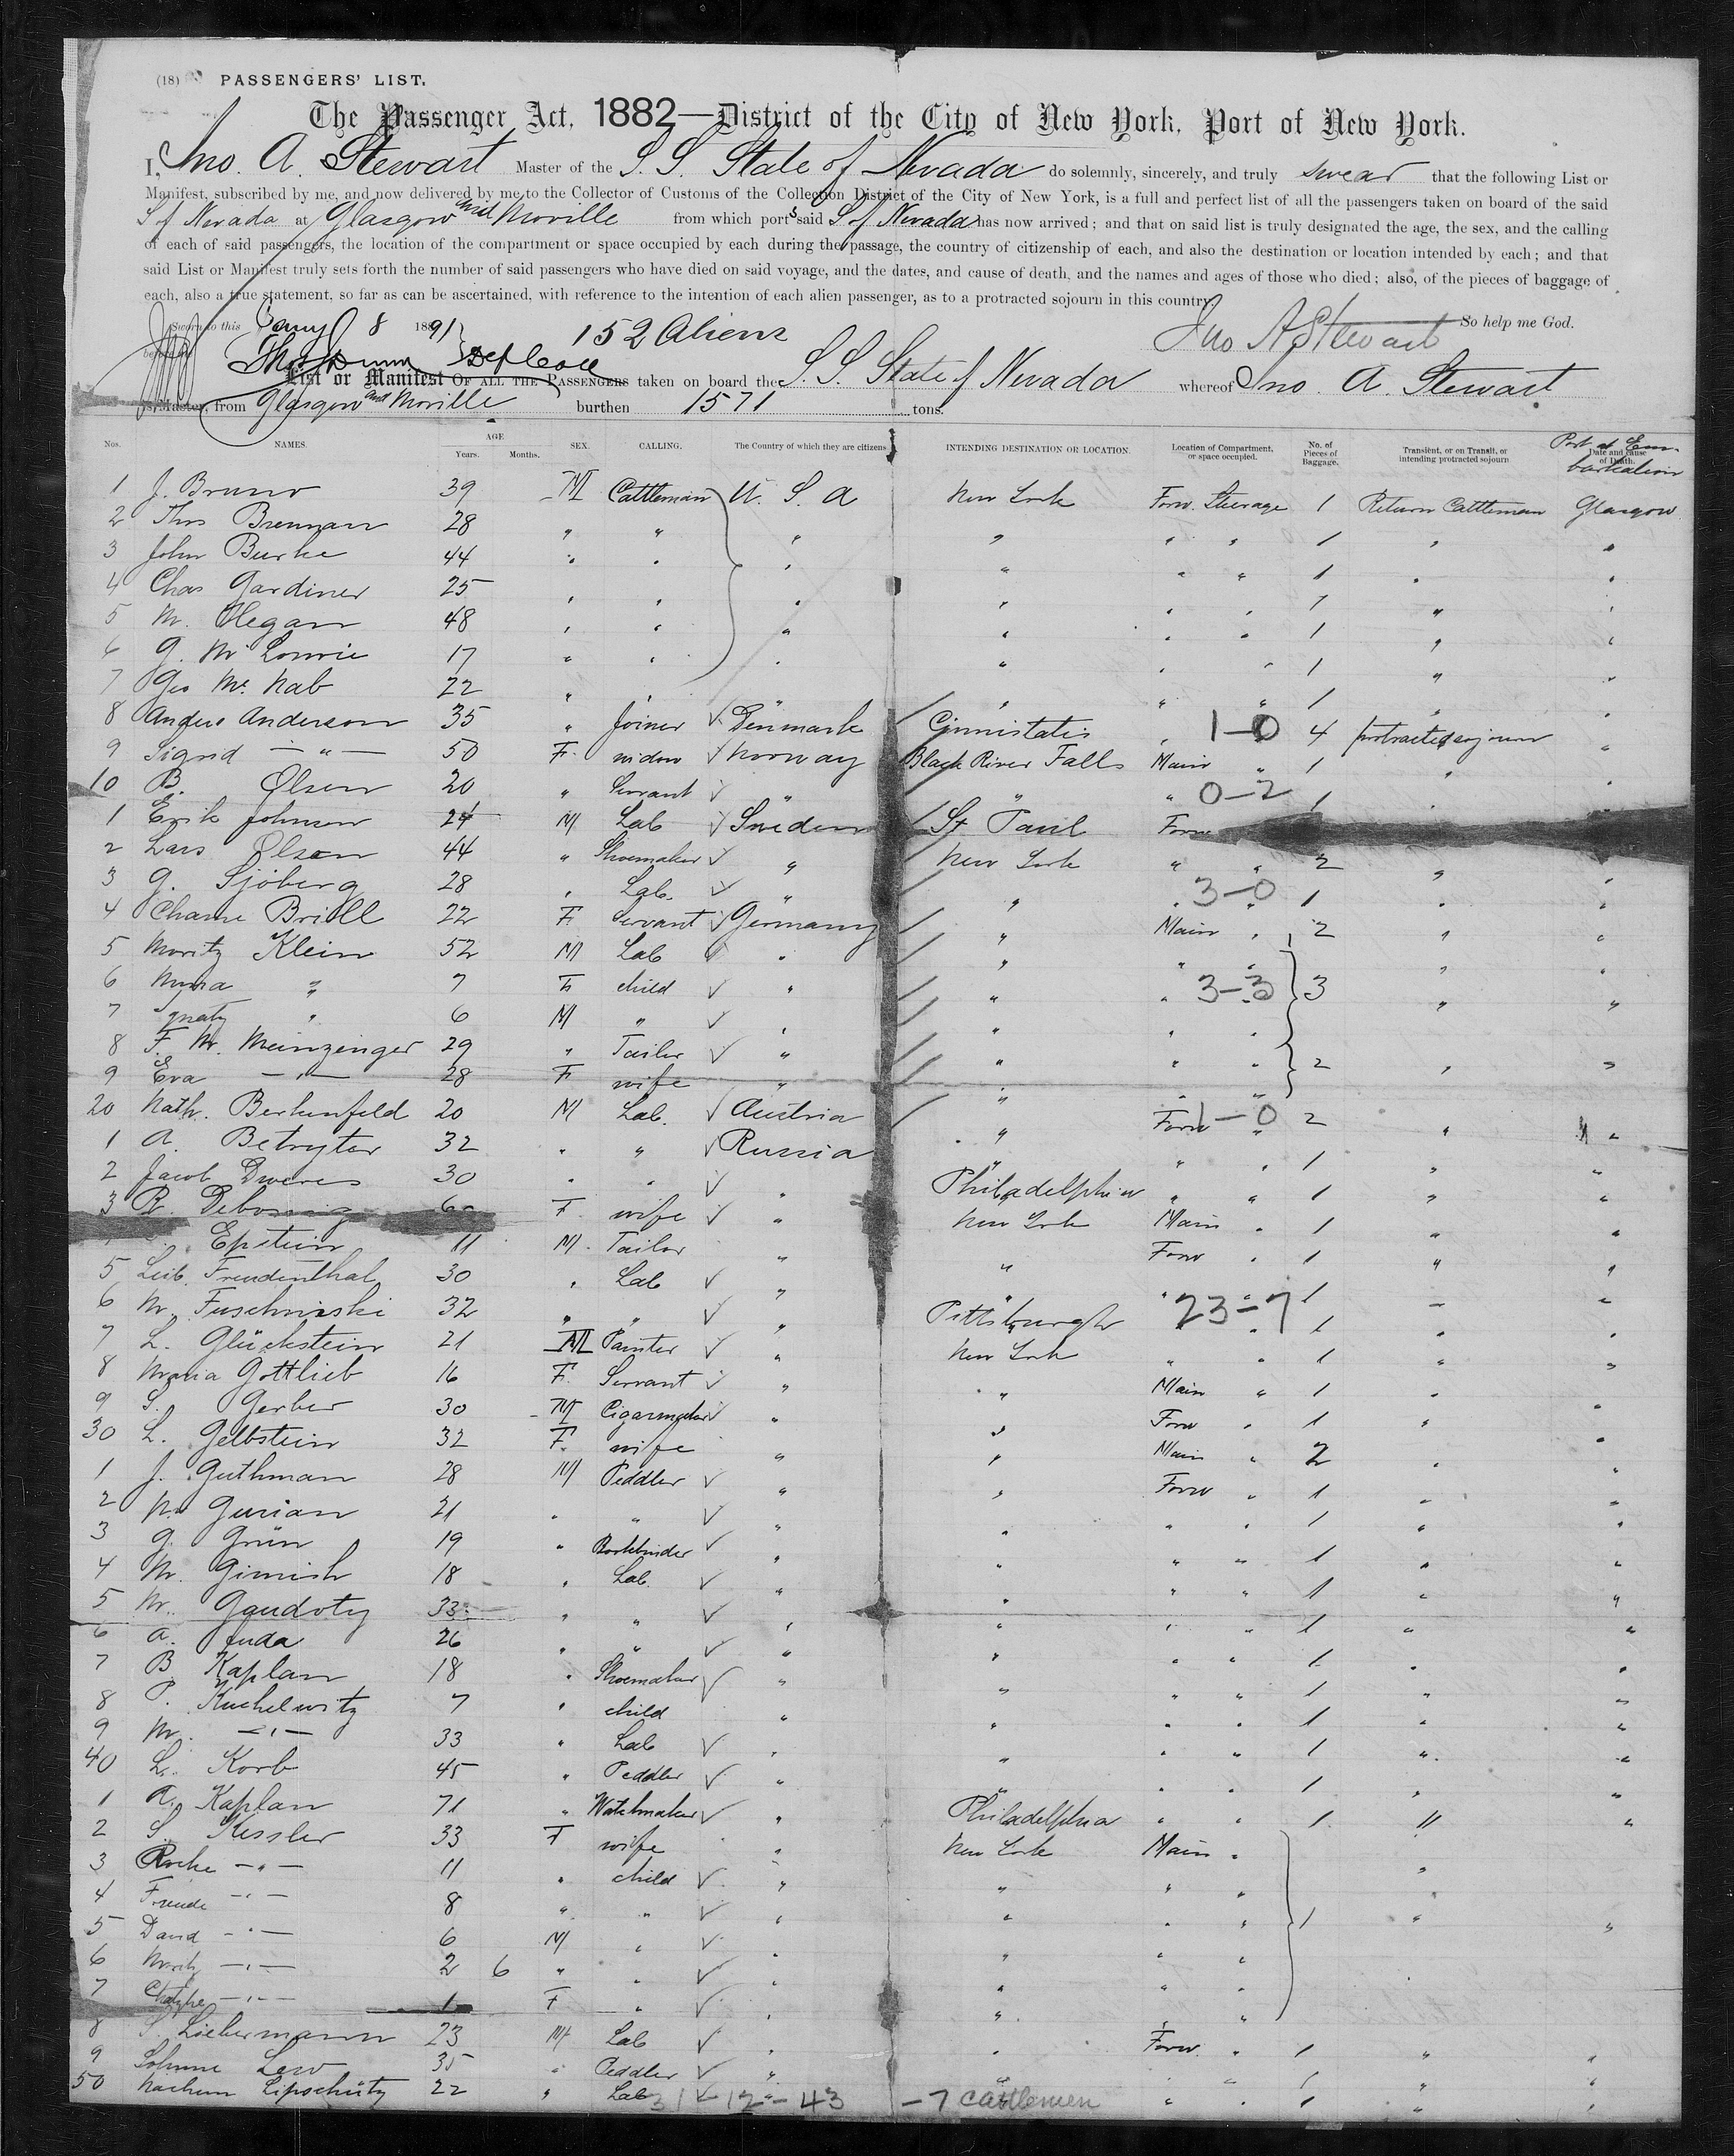 (18) PASSENGERS' LIST.
The Passenger Act, 1882—District of the City of New York, Port of New York.
I, Jno. A. Stewart Master of the S. S. State of Nevada do solemnly, sincerely, and truly swear that the following List or
Manifest, subscribed by me, and now delivered by me to the Collector of Customs of the Collection District of the City of New York, is a full and perfect list of all the passengers taken on board of the said
S of Nevada at Glasgow and Moville from which ports said S of Nevada has now arrived; and that on said list is truly designated the age, the sex, and the calling
of each of said passengers, the location of the compartment or space occupied by each during the passage, the country of citizenship of each, and also the destination or location intended by each; and that
said List or Manifest truly sets forth the number of said passengers who have died on said voyage, and the dates, and cause of death, and the names and ages of those who died; also, of the pieces of baggage of
each, also a true statement, so far as can be ascertained, with reference to the intention of each alien passenger, as to a protracted sojourn in this country.
Sworn to this 8 1891 152 Aliens So help me God.
before me Jno A Stewart
List or Manifest OF ALL THE PASSENGERS taken on board the S. S. State of Nevada whereof Jno. A. Stewart
is Master, from Glasgow and Moville burthen 1571 tons.
Nos. NAMES. AGE Years. Months. SEX. CALLING. The Country of which they are citizens INTENDING DESTINATION OR LOCATION. Location of Compartment, or space occupied. No. of Pieces of Baggage. Transient, or on Transit, or intending protracted sojourn Date and cause of Death. Port of Embarkation
1 J. Bruno 39 M Cattleman U. S. A New York Forw. Steerage 1 Return Cattleman Glasgow
2 Thos Brennan 28 " " " " " " 1 " "
3 John Burke 44 " " " " " " 1 " "
4 Chas Gardiner 25 " " " " " " 1 " "
5 M. Hegan 48 " " " " " " 1 " "
6 G. Mc Lowrie 17 " " " " " " 1 " "
7 Geo Mc Nab 22 " " " " " " 1 " "
8 Anders Anderson 35 " Joiner Denmark " 1-0 4 protracted sojourn "
9 Sigrid — " — 50 F widow Norway Black River Falls Main " 1 " "
10 B. Olsen 20 " Servant " " " 0-2 1 " "
1 Erik Johnson 24 M Lab Sweden St Paul Forw
2 Lars Olsen 44 " Shoemaker " New York " " 2 " "
3 G. Sjöberg 28 " Lab. " " " 3-0 1 " "
4 Chane Brill 22 F Servant Germany " Main " 2 " "
5 Moritz Klein 52 M Lab " " " " " "
6 Mina " 7 F child " " " 3-3 3 " "
7 Ignatz " 6 M " " " " "
8 F. M. Meinzinger 29 " Tailor " " " " 2 " "
9 Eva — " — 28 F wife " " " "
20 Nath. Berkenfeld 20 M Lab. Austria " Forw 1-0 2 " "
1 A. Betryter 32 " " Russia " " " 1 " "
2 Jacob Dweres 30 " " " Philadelphia " " 1 " "
3 R. 60 F wife " New York Main " 1 " "
Epstein 11 M Tailor " " Forw " 1 " "
5 Leib. Freudenthal 30 " Lab " " " " 1 " "
6 M. Fuschinski 32 " " " Pittsburgh 23-7 1 " "
7 L. Glückstein 21 M Painter " New York " " 1 " "
8 Maria Gottlieb 16 F. Servant " " Main " 1 " "
9 S. Gerber 30 M Cigarmaker " " Forw " 1 " "
30 L. Gelbstein 32 F. wife " " Main " 2 " "
1 J. Guthman 28 M Peddler " " Forw " 1 " "
2 N. Gurian 21 " " " " " " 1 " "
3 G. Grün 19 " Bookbinder " " " " 1 " "
4 M. Gimish 18 " Lab. " " " " 1 " "
5 M. Gaudoty 33 " " " " " " 1 " "
6 A. Juda 26 " " " " " " 1 " "
7 B Kaplan 18 " Shoemaker " " " " 1 " "
8 P. Kuchelwitz 7 " child " " " " 1 " "
9 M. — " — 33 " Lab " " " " 1 " "
40 L. Korb 45 " Peddler " " " " 1 " "
1 A. Kaplan 71 " Watchmaker " Philadelphia " " 1 " "
2 S. Kessler 33 F wife " New York Main " "
3 Roche — " — 11 " child " " " " "
4 Freude — " — 8 " " " " " " 1 " "
5 David — " — 6 M " " " " "
6 Moritz — " — 2 6 " " " " " "
7 — " — 1 F " " " " "
8 S. Liebermann 23 M Lab " " Forw. " 1 " "
9 Lew 35 " Peddler " " " " 1 " "
50 Nachum Lipschütz 22 " Lab " " " " 1 " "
31-12-43 -7 Cattlemen